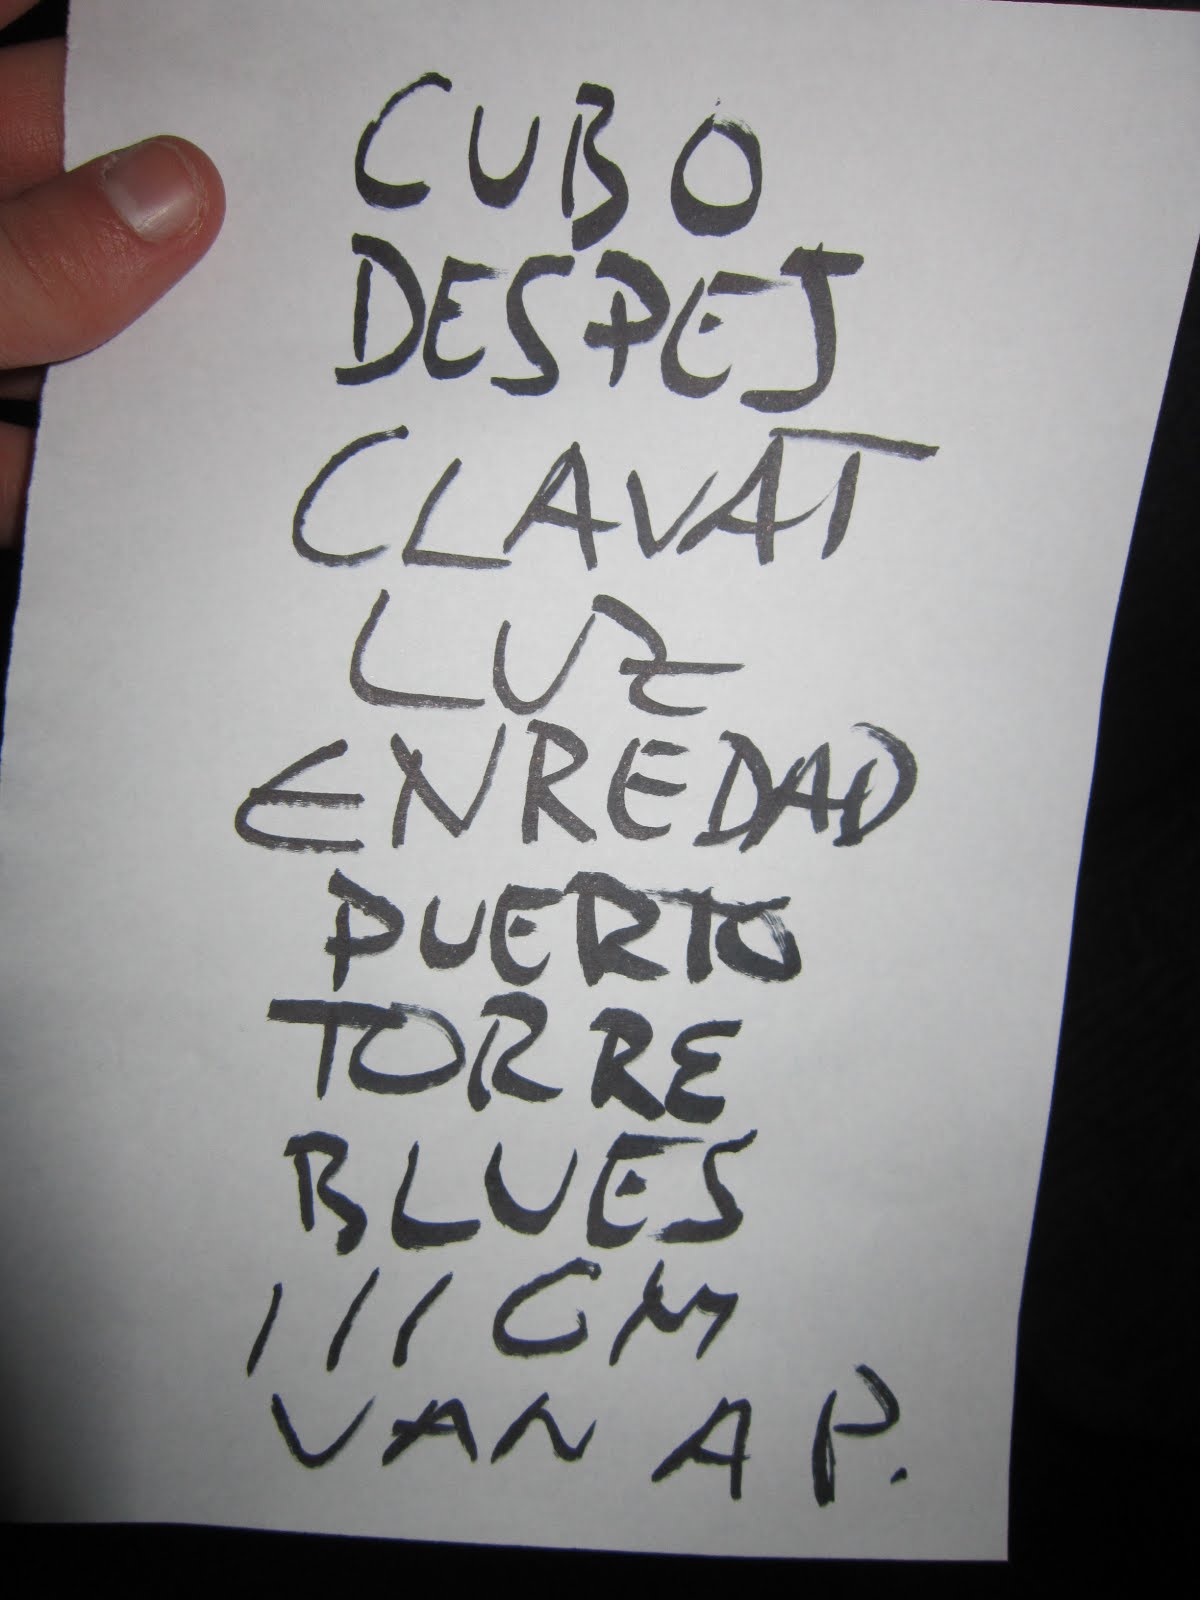 CUBO
DESPEJ
CLAVAT
LUZ
ENREDAD
PUERTO
TORRE
BLUES
111 CM
VAN A P.